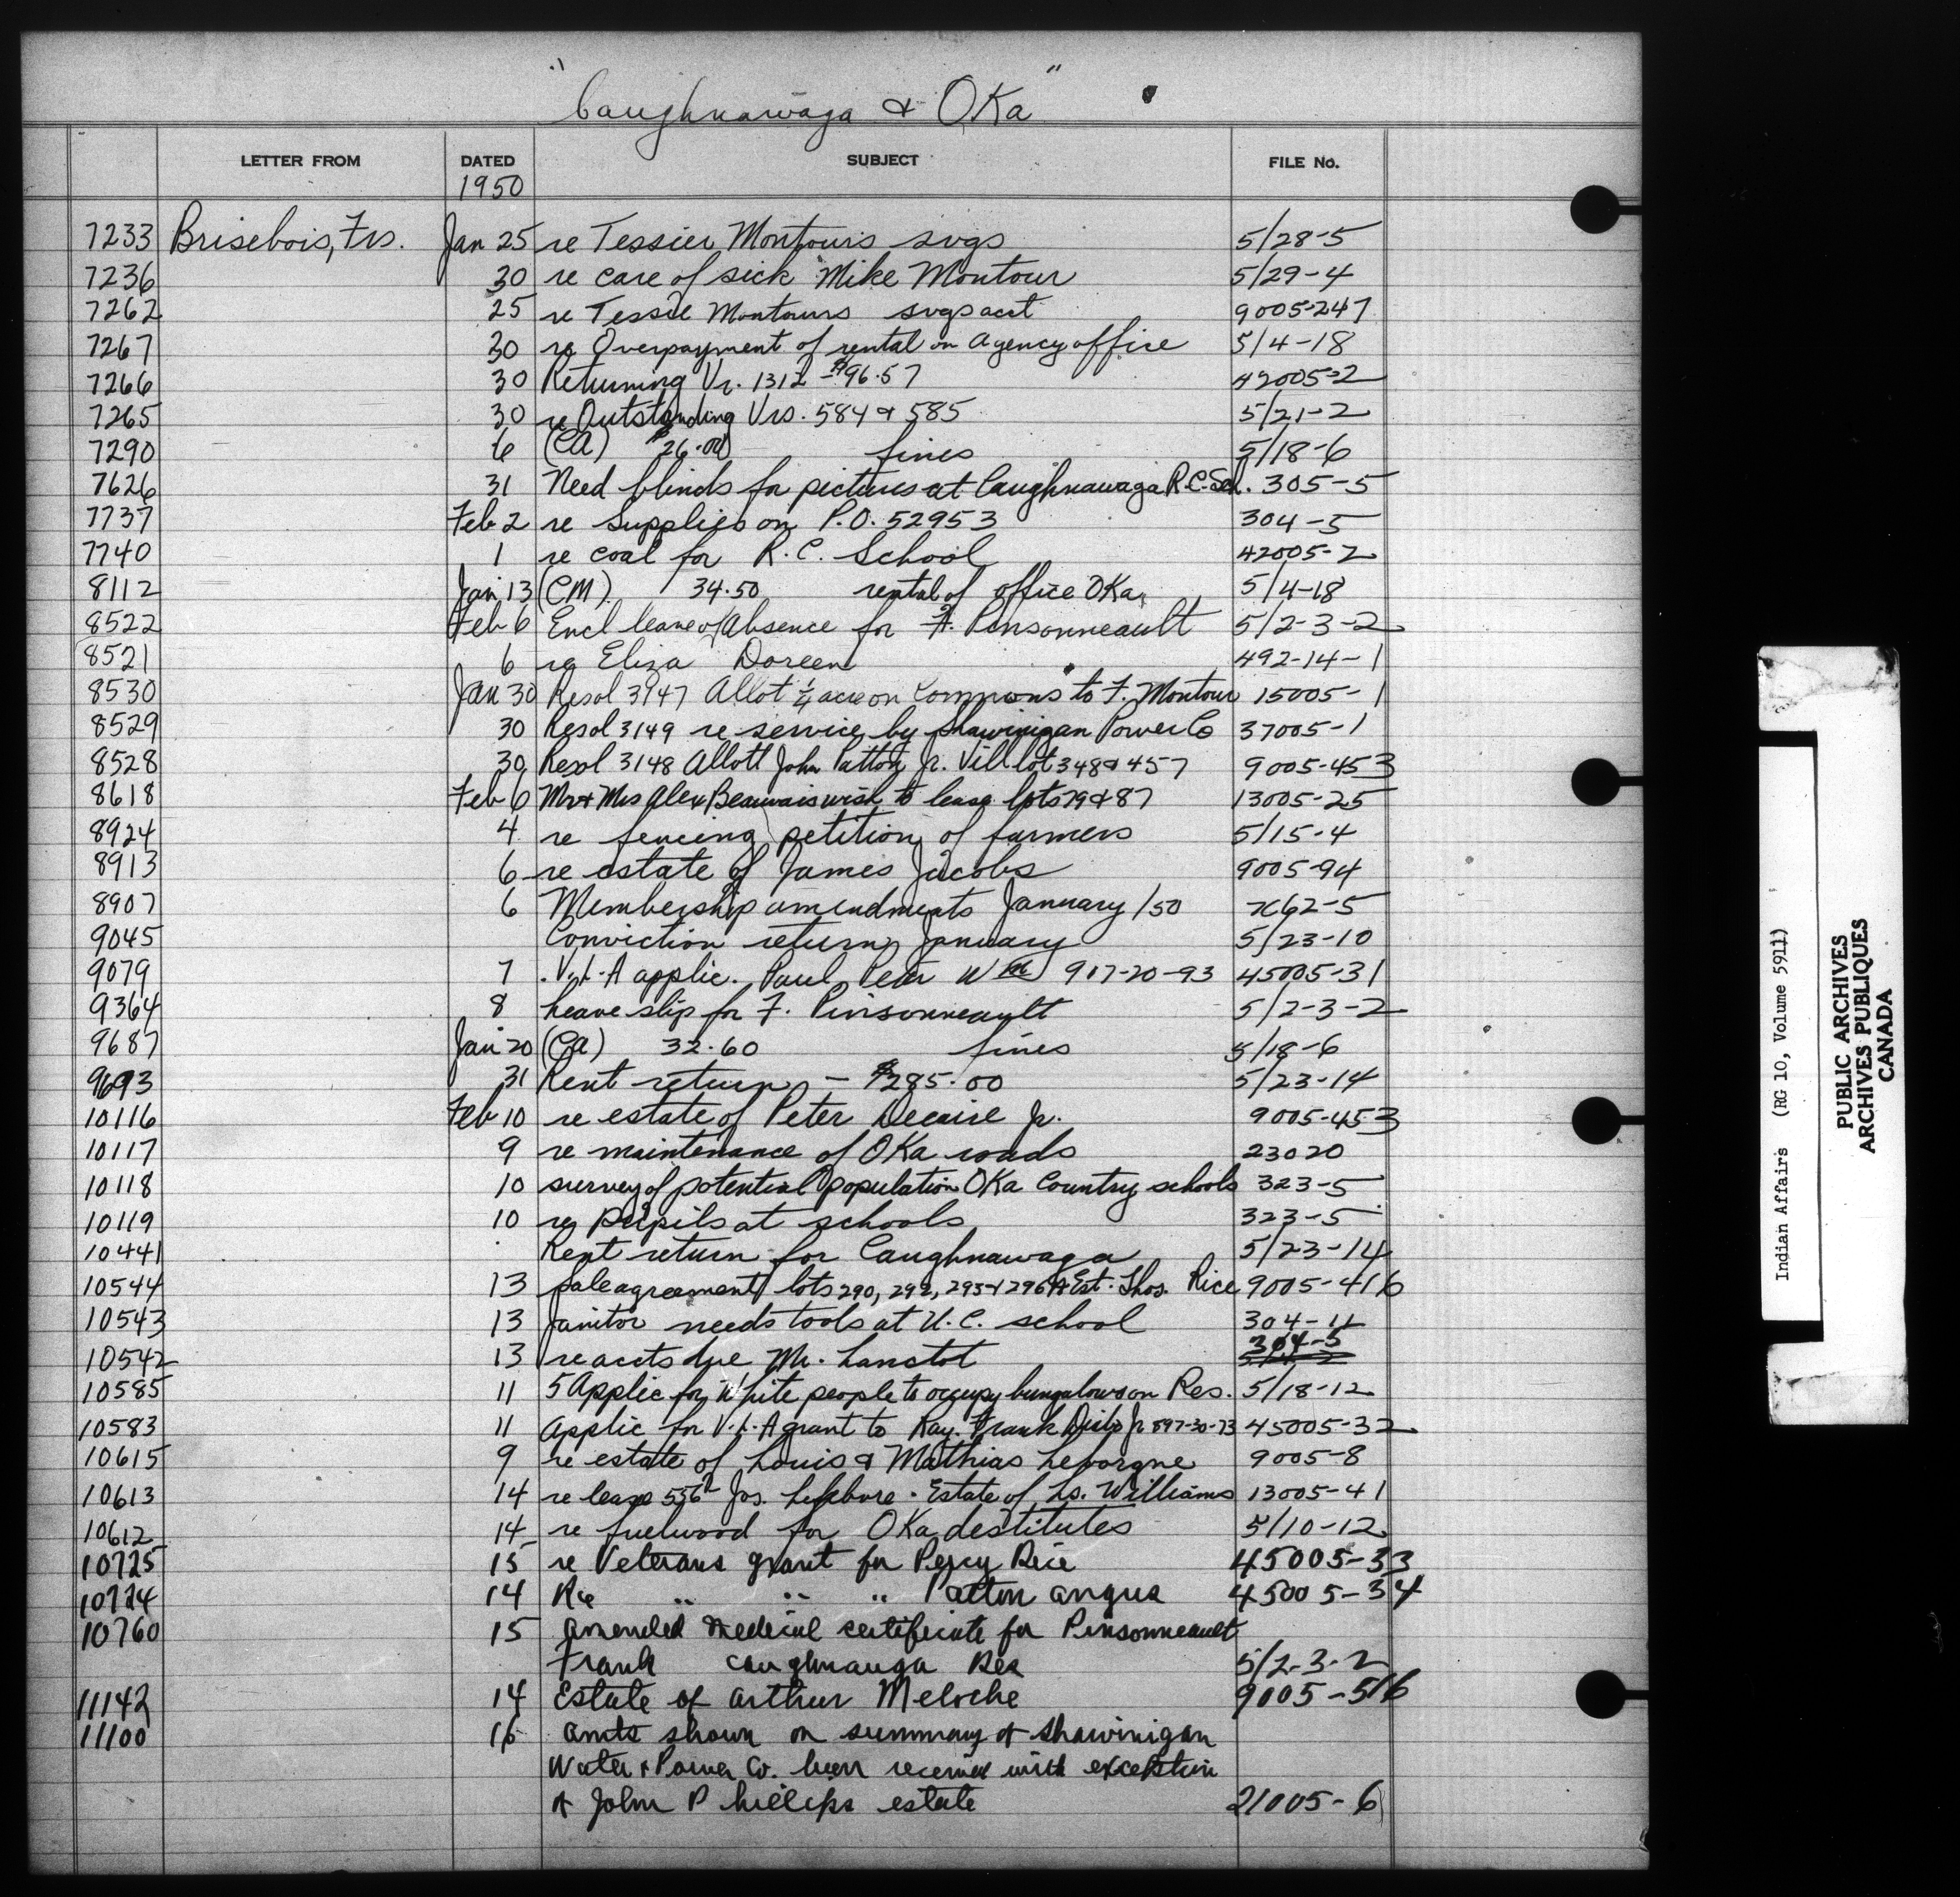 "Caughnawaga & Oka"
LETTER FROM DATED SUBJECT FILE No.
1950
7233 Brisebois, Frs. Jan 25 re Tessier Montours svgs 5/28-5
7236 30 re care of sick Mike Montour 5/29-4
7262 25 re Tessie Montours svgs acct 9005-247
7267 30 re Overpayment of rental on Agency office 5/4-18
7266 30 Returning Vr. 1312 - $96.57 42005-2
7265 30 re Outstanding Vrs. 584 & 585 5/21-2
7290 6 (CA) $26.00 fines 5/18-6
7626 31 Need blinds for pictures at Caughnawaga R.C. Sch. 305-5
7737 Feb 2 re Supplies on P.O. 52953 304-5
7740 1 re coal for R.C. School 42005-2
8112 Jan 13 (CM) 34.50 rental of office OKa 5/4-18
8522 Feb 6 Encl leave of Absence for F. Pinsonneault 5/2-3-2
8521 6 re Eliza Doreen 492-14-1
8530 Jan 30 Resol 3147 Allot 1/4 acre on Commons to F. Montour 15005-1
8529 30 Resol 3149 re service by Shawinigan Power Co 37005-1
8528 30 Resol 3148 Allott John Patton Jr. Vill lot 348 & 457 9005-453
8618 Feb 6 Mr & Mrs Alex Beauvais wish to lease lots 79 & 87 13005-25
8924 4 re fencing petition of farmers 5/15-4
8913 6 re estate of James Jacobs 9005-94
8907 6 Membership amendments January /50 62-5
9045 Conviction return January 5/23-10
9079 7 V.L.A applic. Paul Peter Wm 917-20-93 45005-31
9364 8 Leave slip for F. Pinsonneault 5/2-3-2
9687 Jan 20 (CA) 32.60 fines 5/18-6
9693 31 Rent return - $285.00 5/23-14
10116 Feb 10 re estate of Peter Decaire Jr. 9005-453
10117 9 re maintenance of OKa roads 23020
10118 10 survey of potential population OKa Country schools 323-5
10119 10 re pupils at schools 323-5
10441 Rent return for Caughnawaga 5/23-14
10544 13 sale agreement lots 290, 292, 295 & 296 Est. Thos. Rice 9005-416
10543 13 Janitor needs tools at U.C. school 304-11
10542 13 re accts due Mr. Lanctot 304-5
10585 11 5 Applic for White people to occupy bungalows on Res. 5/18-12
10583 11 Applic for V.L.A grant to Ray. Frank Jr 897-30-73 45005-32
10615 9 re estate of Louis & Mathias Leborgne 9005-8
10613 14 re lease 556 Jos. Lefebvre - Estate of Ls. Williams 13005-41
10612 14 re fuelwood for OKa destitutes 5/10-12
10725 15 re Veterans grant for Percy Rice 45005-33
10724 14 Re " " " Patton Angus 45005-34
10760 15 Amended medical certificate for Pinsonneault
Frank Caughnauga Res 5/2-3-2
11142 14 Estate of Arthur Meloche 9005-516
11100 16 Amts shown on summary of Shawinigan
Water & Power Co. been received with exception
of John Phillips estate 21005-6
Indian Affairs (RG 10, Volume 5911)
PUBLIC ARCHIVES
ARCHIVES PUBLIQUES
CANADA